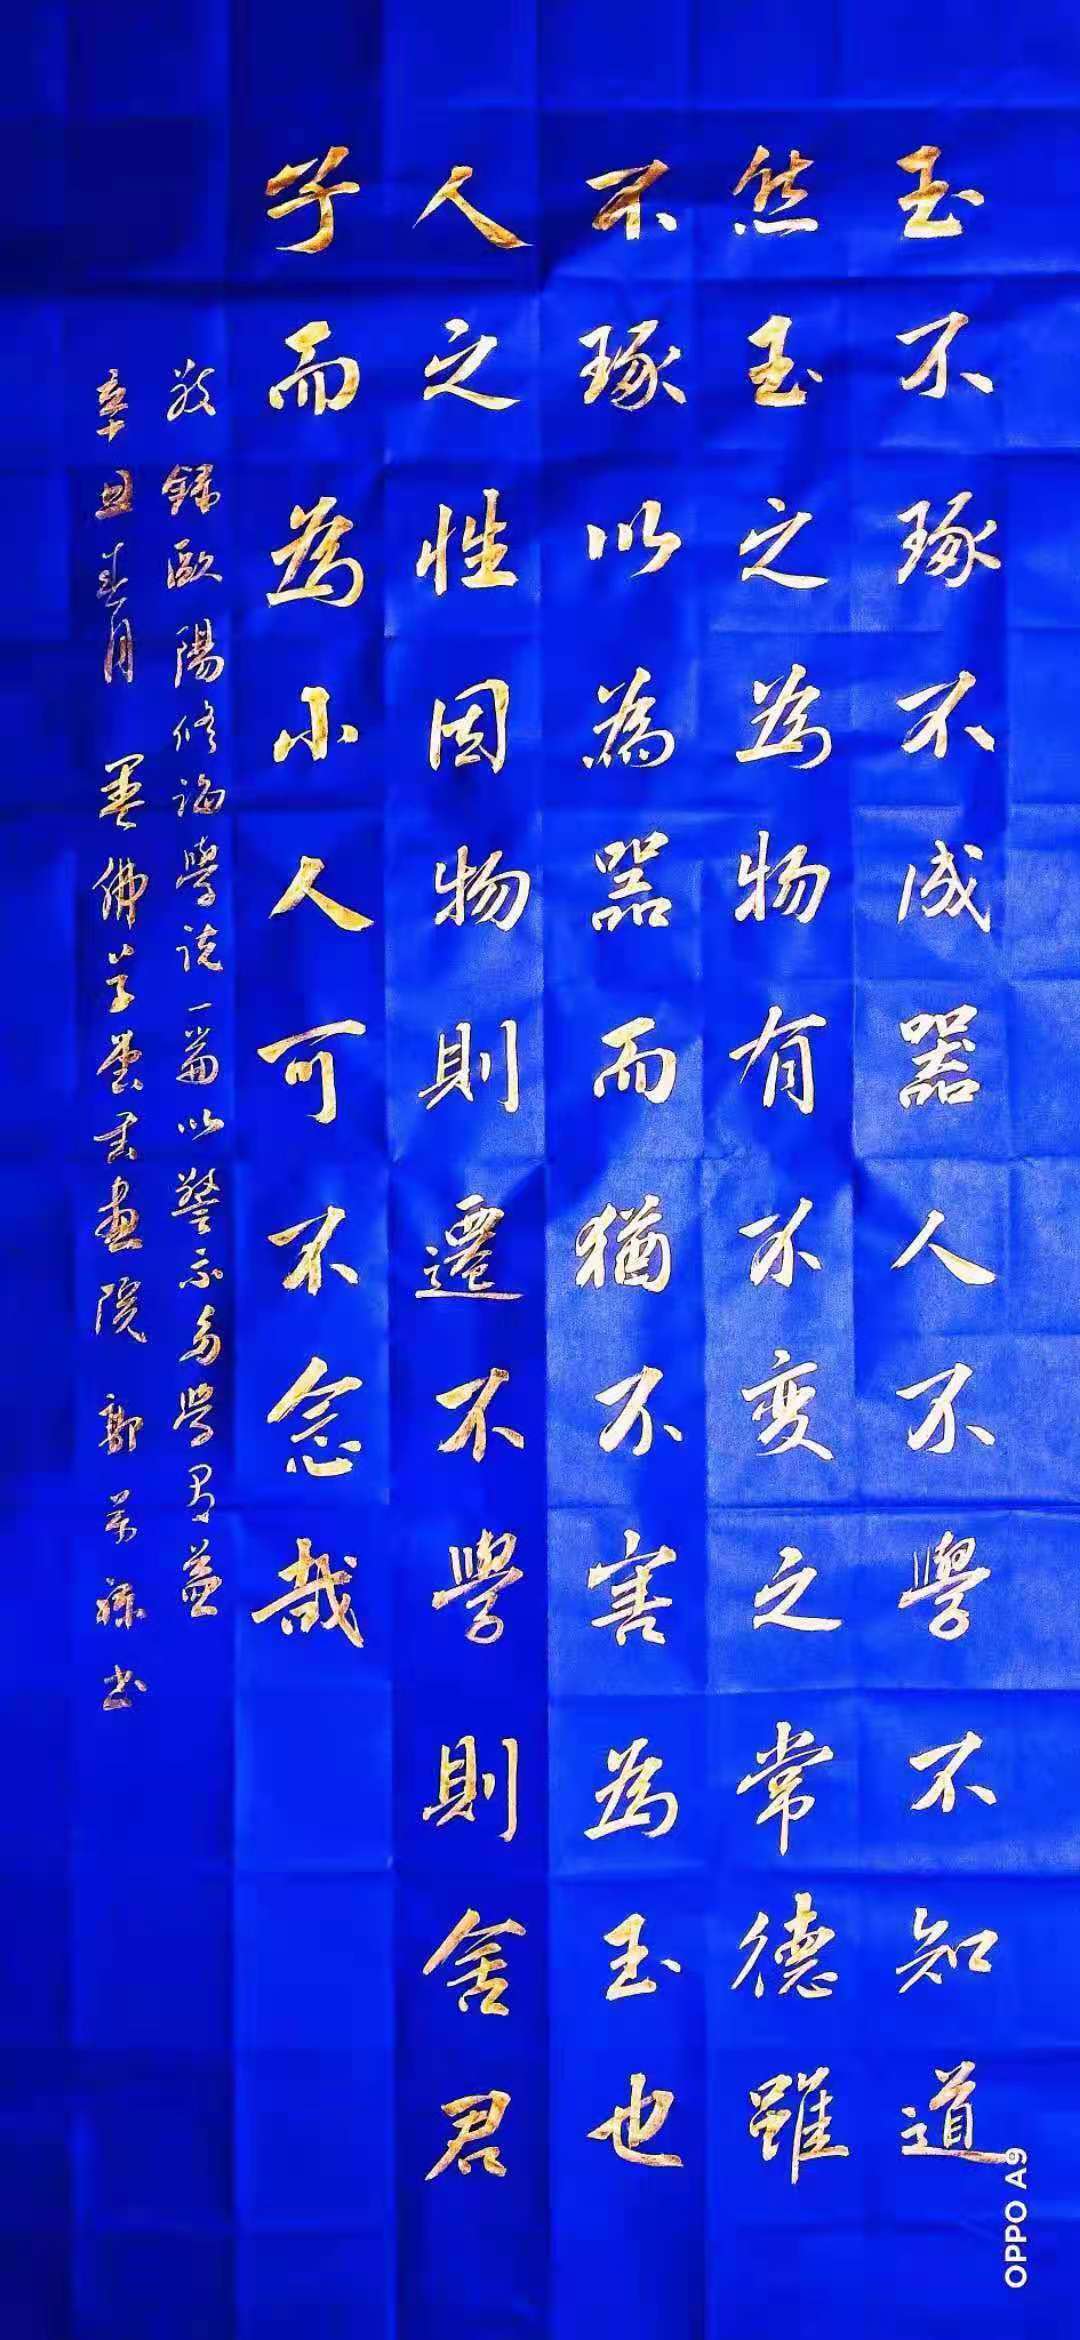 玉不琢不成器人不學不知道
然玉之為物有不變之常德雖
不琢以為器而猶不害為玉也
人之性因物則遷不學則舍君
子而為小人可不念哉
敬錄歐陽修誨學說一篇以警示勿學習益
辛丑春月 墨佛草堂書畫院 郭萬祿書
OPPO A9